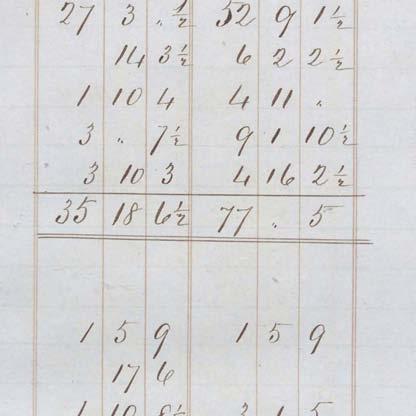 27 3 " ½ 52 9 1½
14 3½ 6 2 2½
1 10 4 4 11 "
3 " 7½ 9 1 10½
3 10 3 4 16 2½
35 18 6½ 77 " 5
1 5 9 1 5 9
17 6